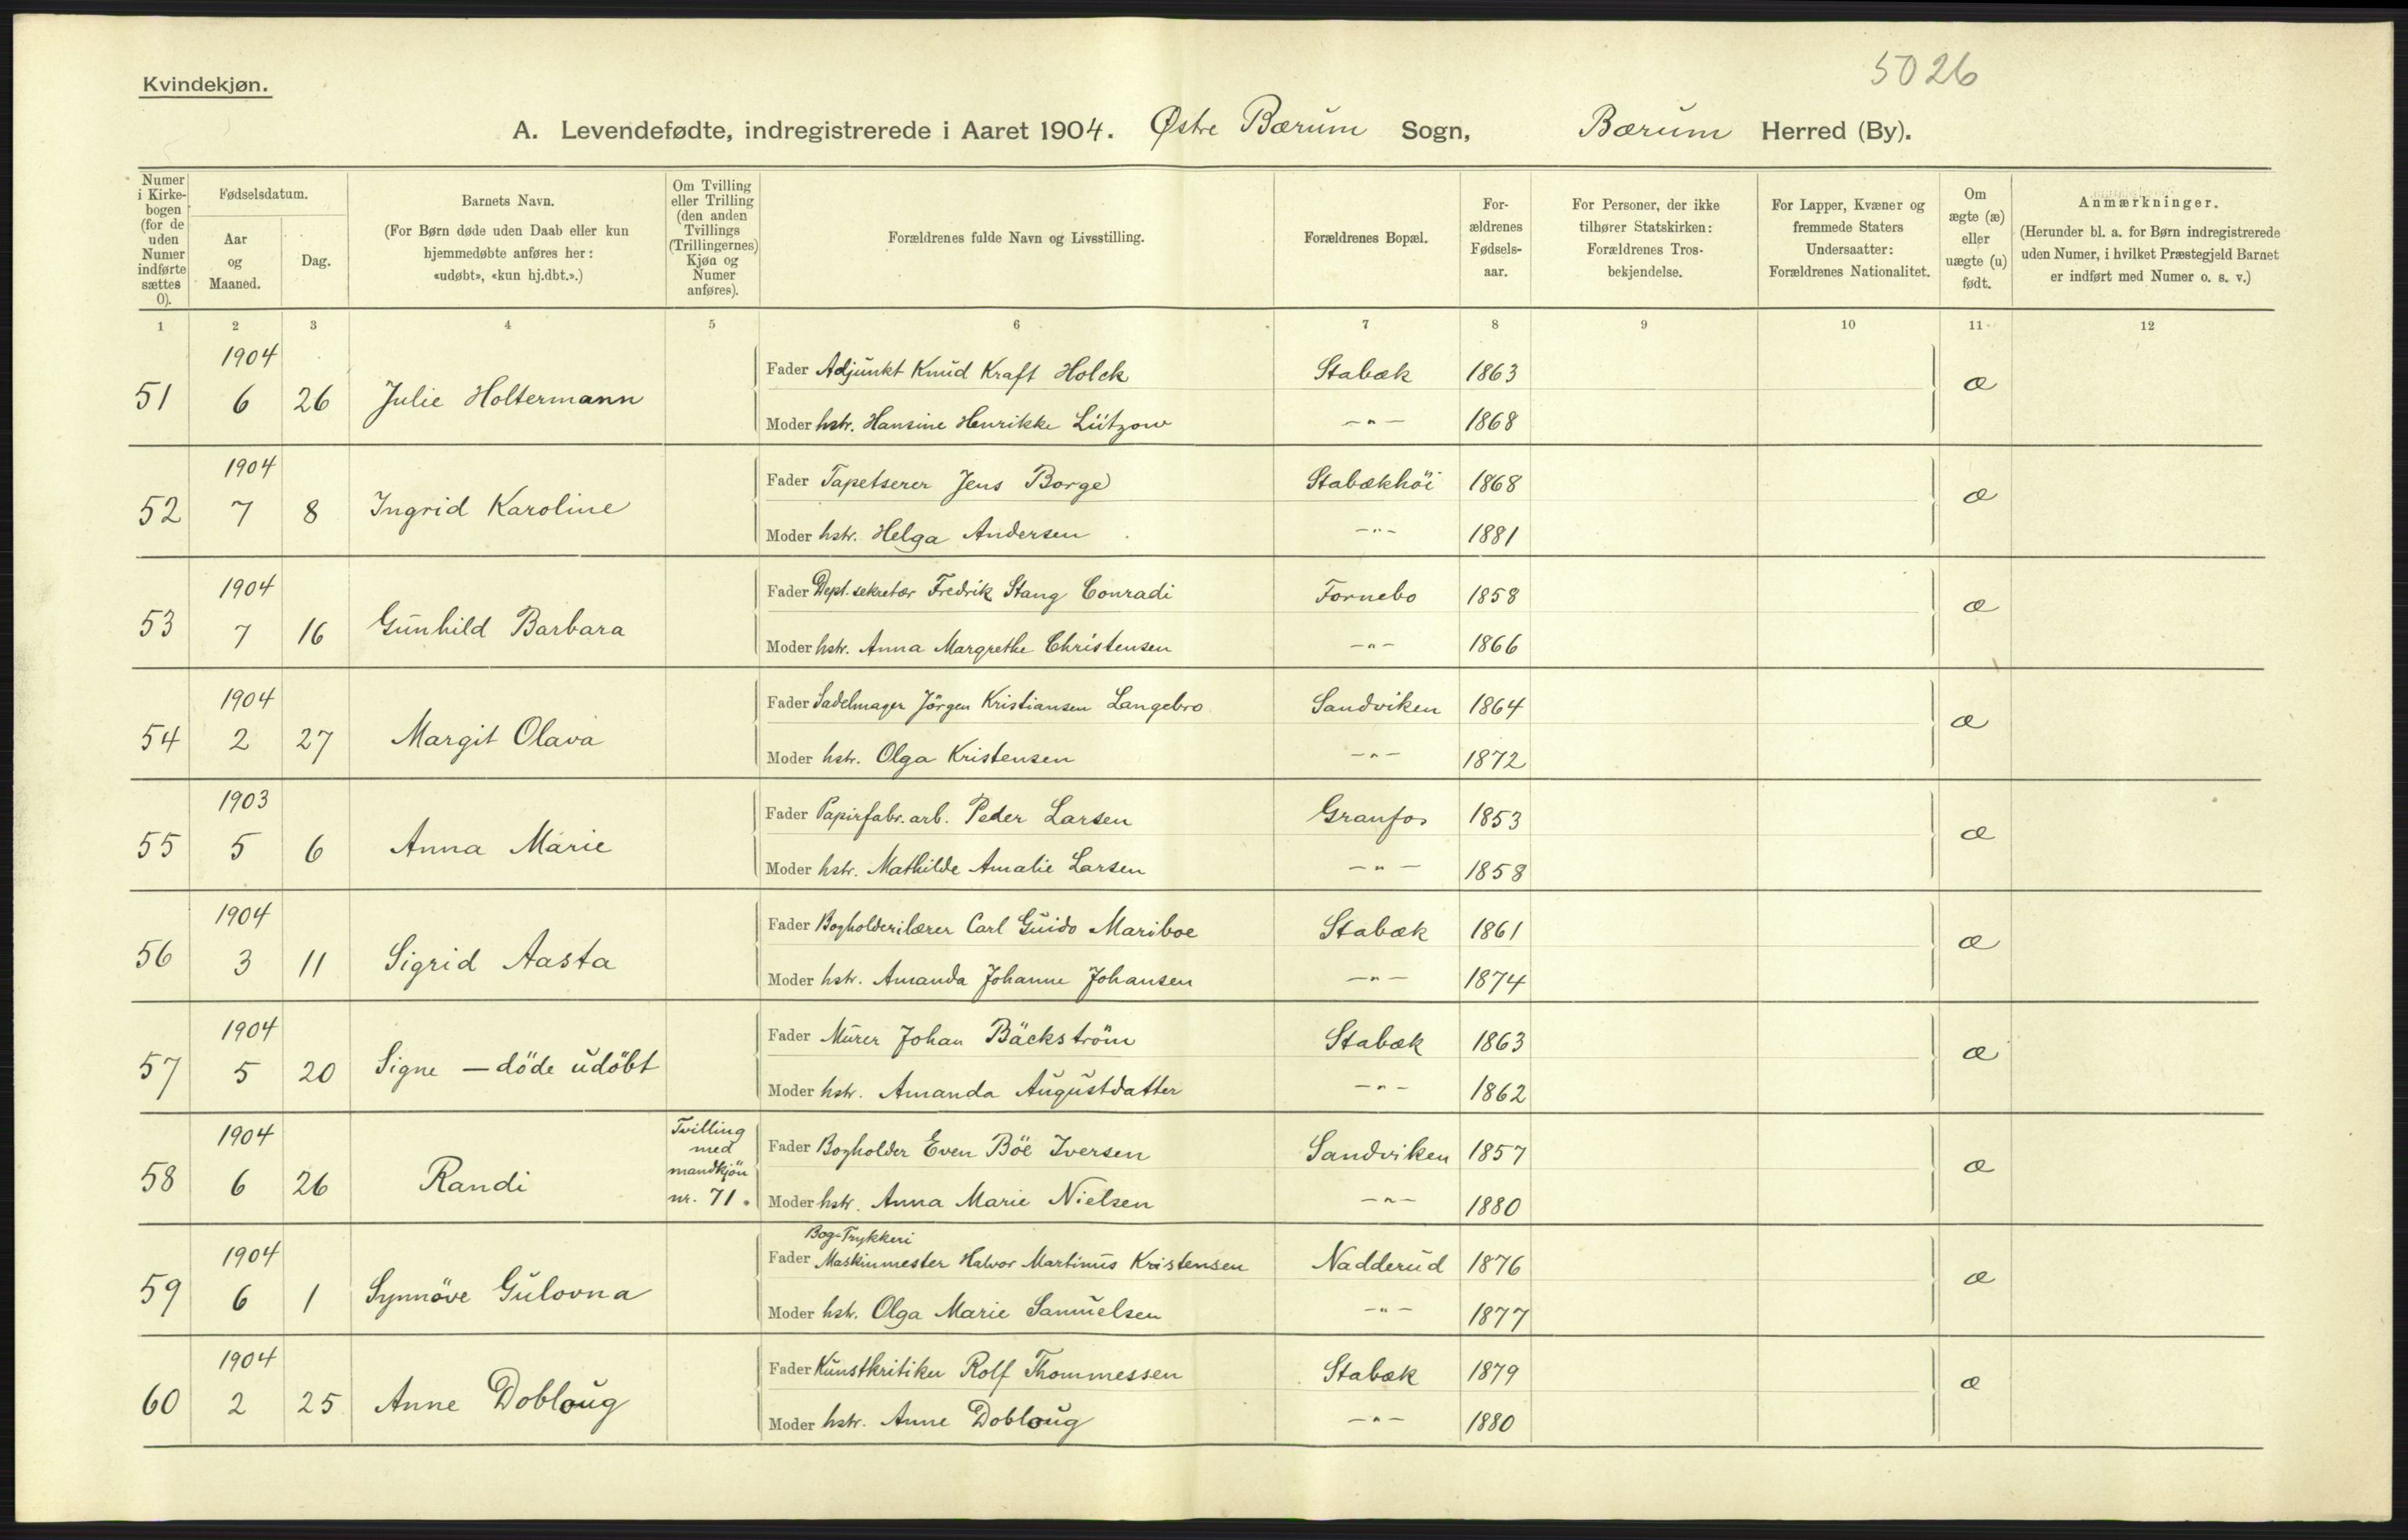 5026
Kvindekjøn.
A. Levendefødte, indregistrerede i Aaret 1904. Østre Bærum Sogn, Bærum Herred (By).
Numer i Kirkebogen (for de uden Numer indførte sættes 0).
Fødselsdatum.
Aar og Maaned.
Dag.
Barnets Navn.
(For Børn døde uden Daab eller kun hjemmedøbte anføres her: «udøbt», «kun hj.dbt.».)
Om Tvilling eller Trilling (den anden Tvillings (Trillingernes) Kjøn og Numer anføres).
Forældrenes fulde Navn og Livsstilling.
Forældrenes Bopæl.
For-
ældrenes
Fødsels-
aar.
For Personer, der ikke tilhører Statskirken: Forældrenes Tros-
bekjendelse.
For Lapper, Kvæner og fremmede Staters Undersaatter: Forældrenes Nationalitet.
Om ægte (æ) eller uægte (u) født.
Anmærkninger.
(Herunder bl. a. for Børn indregistrerede uden Numer, i hvilket Præstegjeld Barnet er indført med Numer o. s. v.)
1 2 3 4 5 6 7 8 9 10 11 12
1904
51 6 26 Julie Holtermann
Fader Adjunkt Knud Kraft Holck Stabæk 1863 æ
Moder hstr. Hansine Henrikke Lützow -"- 1868
1904
52 7 8 Ingrid Karoline
Fader Tapetserer Jens Borge Stabækhöi 1868 æ
Moder hstr. Helga Andersen -"- 1881
1904
53 7 16 Gunhild Barbara
Fader Dept. sekretær Fredrik Stang Conradi Fornebo 1858 æ
Moder hstr. Anna Margrethe Christensen -"- 1866
1904
54 2 27 Margit Olava
Fader Sadelmager Jörgen Kristiansen Langebro Sandviken 1864 æ
Moder hstr. Olga Kristensen -"- 1872
1903
55 5 6 Anna Marie
Fader Papirfabr. arb. Peder Larsen Granfos 1853 æ
Moder hstr. Mathilde Amalie Larsen -"- 1858
1904
56 3 11 Sigrid Aasta
Fader Bogholderilærer Carl Guido Mariboe Stabæk 1861 æ
Moder hstr. Amanda Johanne Johansen -"- 1874
1904
57 5 20 Signe — döde udöbt
Fader Murer Johan Bäckström Stabæk 1863 æ
Moder hstr. Amanda Augustdatter -"- 1862
1904
58 6 26 Randi
Tvilling
med
mandkjön
nr. 71.
Fader Bogholder Even Böe Iversen Sandviken 1857 æ
Moder hstr. Anna Marie Nielsen -"- 1880
1904
59 6 1 Synnöve Gulovna
Bog-Trykkeri
Fader Maskinmester Halvor Martinus Kristensen Nadderud 1876 æ
Moder hstr. Olga Marie Samuelsen -"- 1877
1904
60 2 25 Anne Dobloug
Fader Kunstkritiker Rolf Thommessen Stabæk 1879 æ
Moder hstr. Anne Dobloug -"- 1880